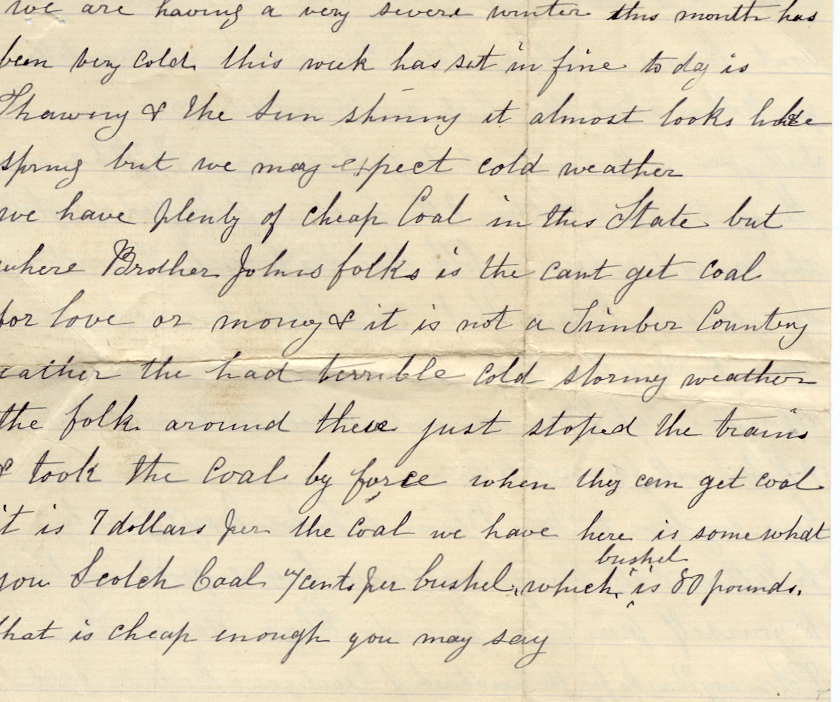 we are having a very severe winter this month has
been very cold this week has set in fine to day is
Thawing & the Sun shining it almost looks like
spring but we may expect cold weather
we have plenty of cheap Coal in this State but
where Brother Johns folks is the cant get coal
for love or money & it is not a Timber Country
eather the had terrible cold stormy weather
the folk around there just stoped the trains
& took the Coal by force when they can get coal
it is 7 dollars per the Coal we have here is somewhat
you Scotch Coal 7 cents per bushel, which bushel is 80 pounds.
that is cheap enough you may say